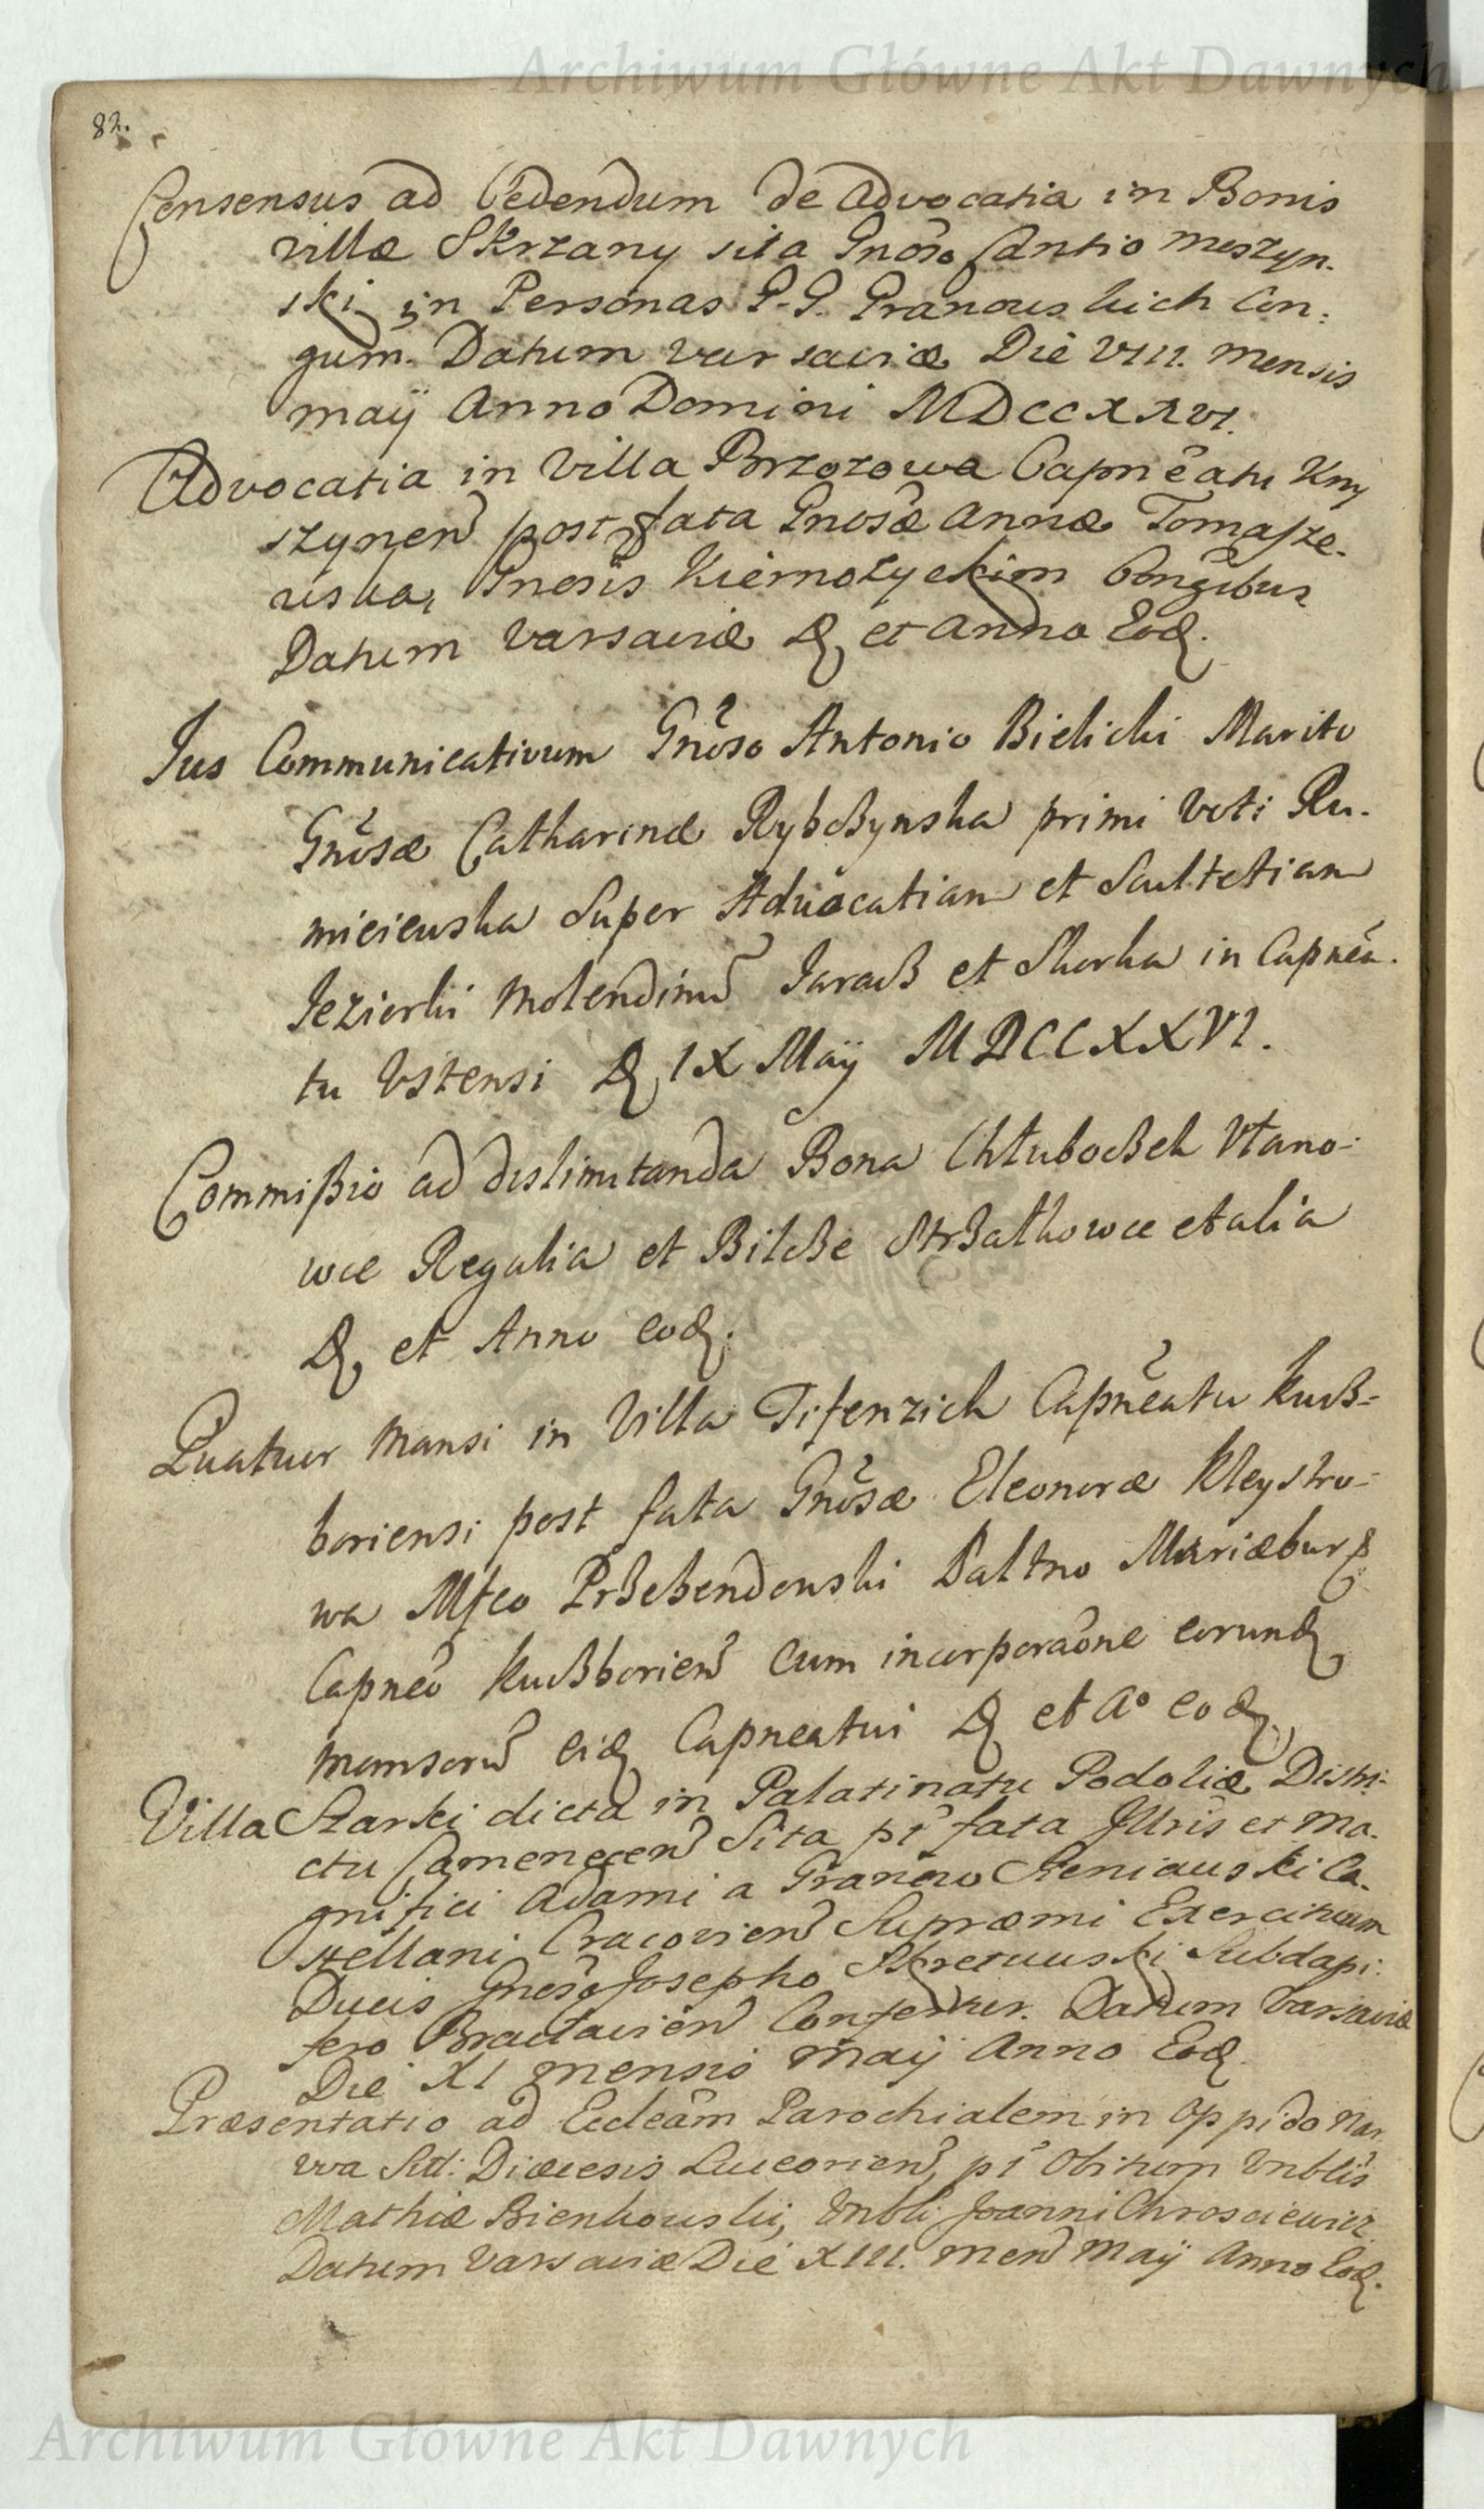 Archiwum Główne Akt Dawnych
82.
Consensus ad Cedendum de Advocatia in Bonis
villæ Skrzany sita Gnoso Santio Meszyn-
ski in Personas G. G. Pranouskich Con:
gum. Datum Varsaviæ Die VIII. mensis
maÿ Anno Domini MDCCXXVI.
Advocatia in Villa Brzozowa Capneatu Kny
szynen post fata Gnosæ Annæ Tomasze-
uska, Gnosis Kiernozyckim Congibus
Datum Varsaviæ D. et Anno Eod.
Jus Communicativum Gnoso Antonio Bielicki Marito
Gnosæ Catharinæ Rybczynska primi Voti Ru-
mieieuska Super Advocatiam et Scultetiam
Jeziorki Molendinu Jaracz et Skorka in Capnea-
tu Ustensi D. IX Maÿ MDCCXXVI.
Commissio ad dislimitanda Bona Chłuboczek Utano-
wce Regalia et Bilcze Strzałkowce et alia
D. et Anno eod.
Quatuor Mansi in Villa Tifenzich Capneatu kucz-
boriensi post fata Gnosæ Eleonoræ Kleystro-
wa Mfco Przebendouski Paltno Mariæburg
Capneo kuczborien cum incorporaone eorund
mansoru eid Capneatui D. et Ao eod
Villa Starki dicta in Palatinatu Podoliæ Distri-
ctu Camenecen Sita pt fata Illris et Ma-
gnifici Adami a Granow Sieniauski Ca-
stellani Cracovien Supræmi Exercituum
Ducis Gnoso Josepho Skretuuski Subdapi:
fero Bractavien Confertur. Datum Varsaviæ
Die XI mensis Maÿ Anno Eod.
Præsentatio ad Eccleam Parochialem in Oppido Nar
wa Sitt: Diæcesis Luceorien, pt Obitum Vnblis
Mathiæ Bienkouski, Vnbli Joanni Chrosciewicz
Datum Varsaviæ Die XIII. men Maÿ Anno Eod.
Archiwum Główne Akt Dawnych